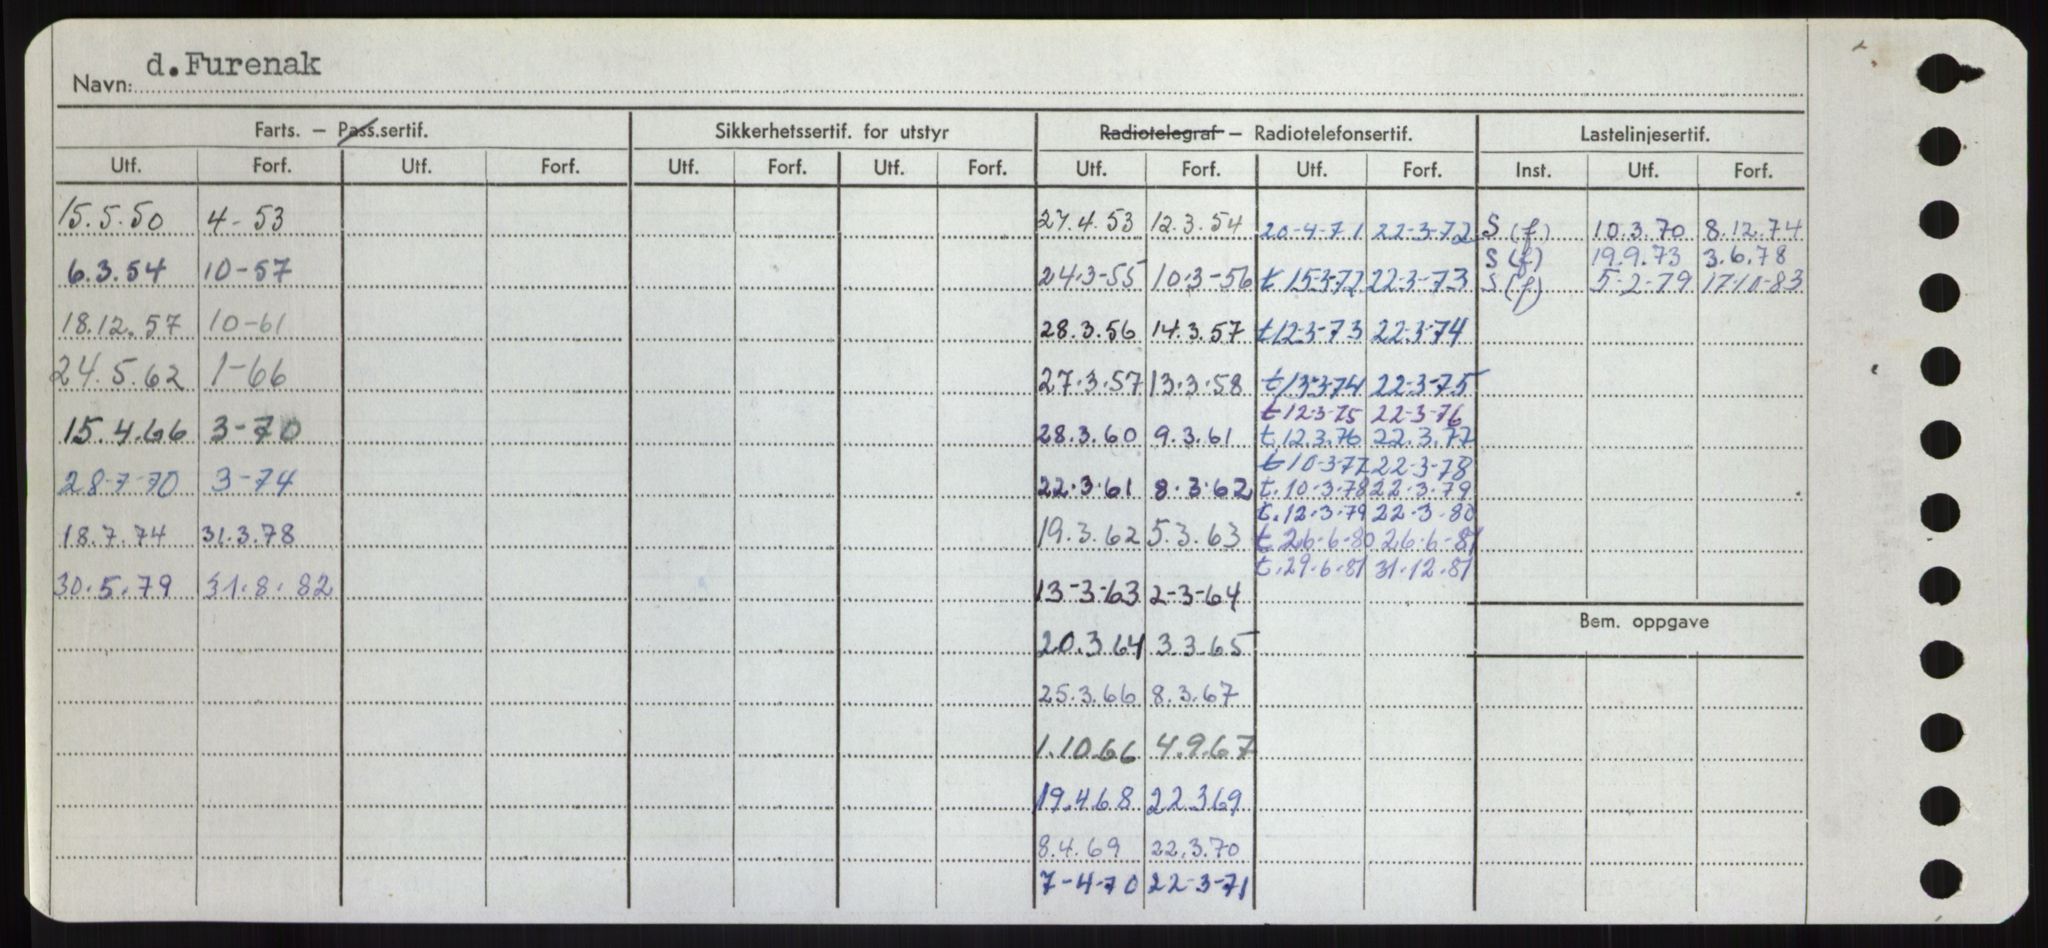 Navn: d.Furenak
Farts. – Pass.sertif. Sikkerhetssertif. for utstyr Radiotelegraf – Radiotelefonsertif. Lastelinjesertif.
Utf. Forf. Utf. Forf. Utf. Forf. Utf. Forf. Utf. Forf. Utf. Forf. Inst. Utf. Forf.
15.5.50 4-53 27.4.53 12.3.54 20-4-71 22-3-72 S (f) 10.3.70 8.12.74
S (f) 19.9.73 3.6.78
6.3.54 10-57 24.3-55 10.3-56 t 15-3-72 22-3-73 S (f) 5-2-79 17-10-83
18.12.57 10-61 28.3.56 14.3.57 t12-3-73 22-3-74
24.5.62 1-66 27.3.57 13.3.58 t13-3-74 22-3-75
t 12-3-75 22-3-76
15.4.66 3-70 28.3.60 9.3.61 t.12.3.76 22.3.77
t 10-3-77 22-3-78
28-7-70 3-74 22.3.61 8.3.62 t.10.3.78 22.3.79
t.12.3.79 22-3-80
18.7.74 31.3.78 19.3.62 5.3.63 t 26-6-80 26-6-81
t.29.6.81 31.12.81
30.5.79 31.8.82 13-3-63 2-3-64
Bem. oppgave
20.3.64 3.3.65
25.3.66 8.3.67
1.10.66 4.9.67
19.4.68 22.3.69
8.4.69 22.3.70
7-4-70 22-3-71